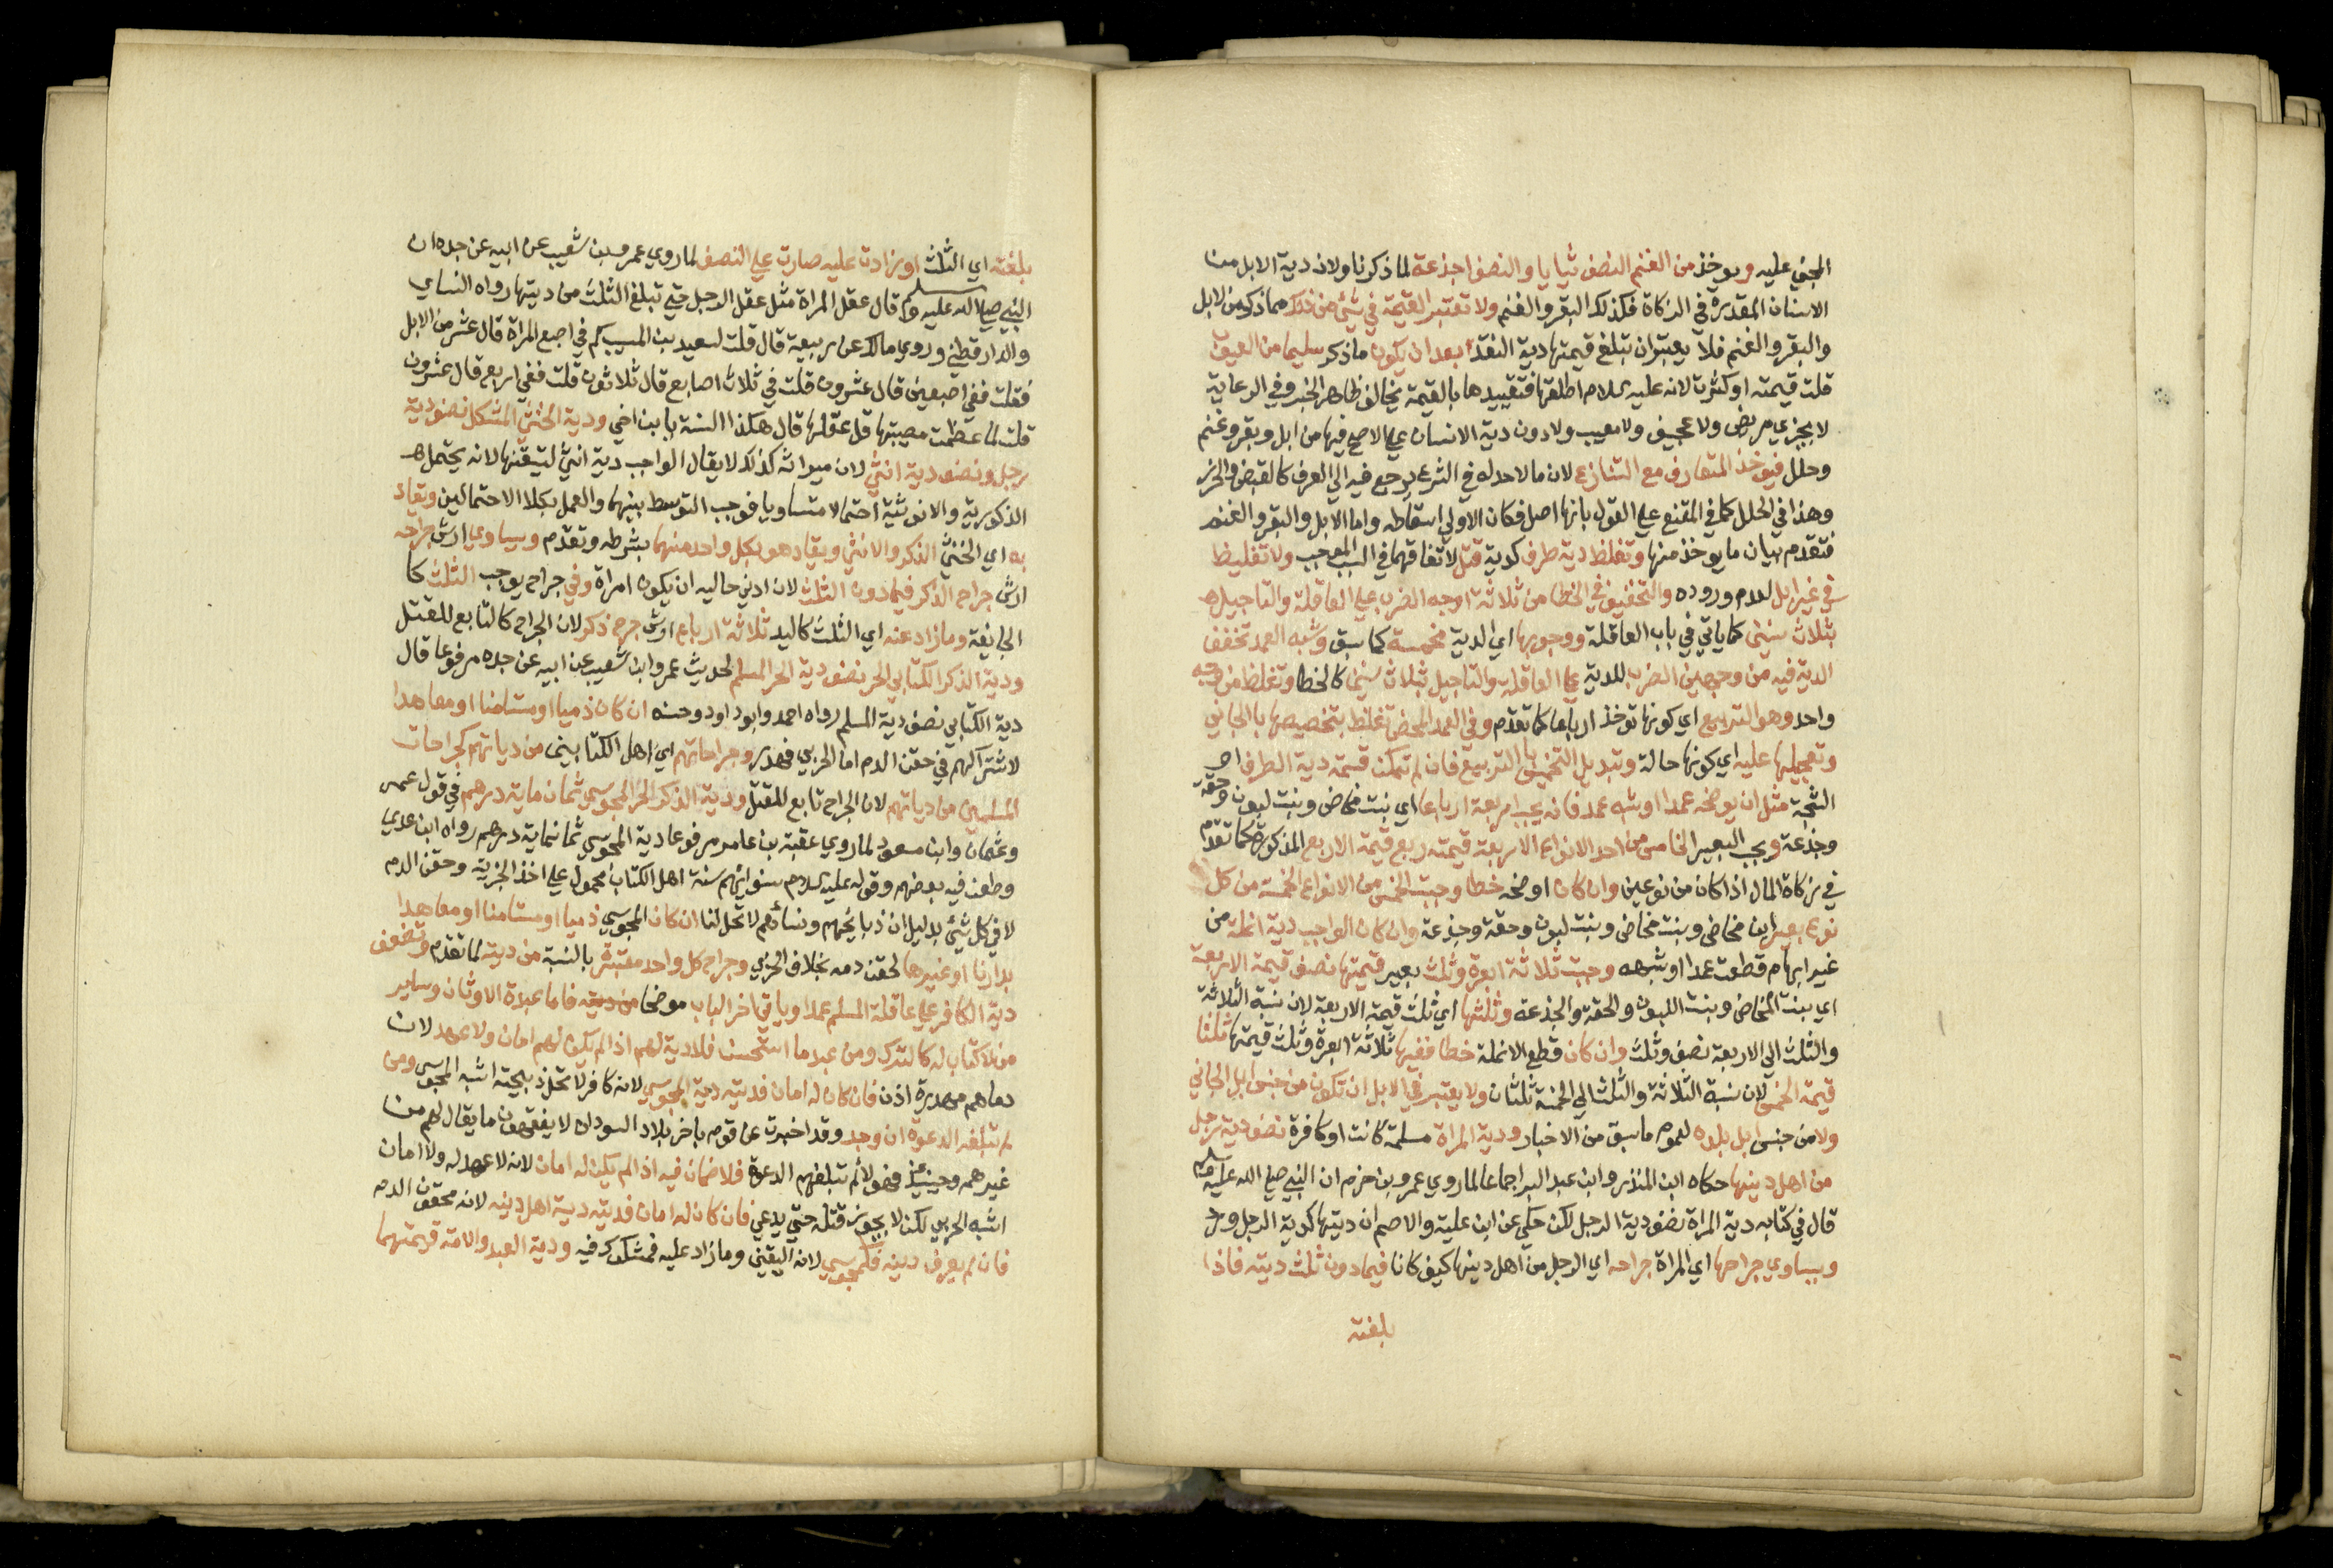 المجني عليه ويوخذ من الغنم النصف ثنايا والنصف اجذعة لما ذكرنا ولان دية الابل من
الاسنان المقدرة في الزكاة فكذلك البقر والغنم ولا تعتبر القيمة في شيء من ذلك مما ذكر من الابل
والبقر والغنم فلا يعتبر ان تبلغ قيمتها دية النقد بعد ان يكون ما ذكر سليما من العيوب
قلت قيمته او كثرت لانه عليه السلام اطلقها فتقييدها بالقيمة يخالف ظاهر الخبر وفي الرعاية
لا يجزي مريض ولا عجيف ولا معيب ولا دون دية الاسنان علي الاصح فيها من ابل وبقر وغنم
وحلل فيوخذ المتعارف مع التنازع لان ما لا حد له في الشرع يرجع فيه الي العرف كالقبض والحرز
وهذا في الحلل كما في المقنع علي القول بانها اصل فكان الاولي اسقاطه واما الابل والبقر والغنم
فتقدم بيان ما يوخذ منها وتغلظ دية طرف كدية قتل لاتفاقهما في السبب الموجب ولا تغليظ
في غير ابل لعدم وروده والتخفيف في الخطا من ثلاثة اوجه الضرب علي العاقلة والتاجيل
بثلاث سنين كما ياتي في باب العاقلة ووجوبها اي الدية مخمسة كما سبق وشبه العمد تخفف
الدية فيه من وجهين الضرب للدية علي العاقلة والتاجيل بثلاث سنين كالخطا وتغلظ من وجه
واحد وهو التربيع اي كونها توخذ ارباعا كما تقدم وفي العمد المحض تغلظ بتخصيصها بالجاني
وتعجيلها عليه اي كونها حالة وتبديل التخميس بالتربيع فان لم تمكن قسمة دية الطرف او
الشجة مثل ان يوضحه عمدا او شبه عمد فانه يجب اربعة ارباعا اي بنت مخاض وبنت لبون وحقة
وجذعة ويجب البعير الخامس من احد الانواع الاربعة قيمته ربع قيمة الاربع المذكورة كما تقدم
في زكاة المال اذا كان من نوعين وان كان اوضحه خطا وجبت الخمس من الانواع الخمسة من كل
نوع بعير ابن مخاض وبنت مخاض وبنت لبون وحقة وجذعة وان كان الواجب دية انملة من
غير ابهام قطعت عمدا او شبهه وجبت ثلاثة ابعرة وثلث بعير قيمتها نصف قيمة الاربعة
اي بنت المخاض وبنت اللبون والحقة والجذعة وثلثها اي ثلث قيمة الاربعة لان نسبة الثلاثة
والثلث الي الاربعة نصف وثلث وان كان قطع الانملة خطا ففيها ثلاثة ابعرة وثلث قيمتها ثلثا
قيمة الخمس لان نسبة الثلاثة والثلث الي الخمسة ثلثان ولا يعتبر في الابل ان تكون من جنس ابل الجاني
ولا من جنس ابل بلده لعموم ما سبق من الاخبار ودية المراة مسلمة كانت او كافرة نصف دية رجل
من اهل دينها حكاه ابن المنذر وابن عبد البر اجماعا لما روي عمرو بن حزم ان النبي صلي الله عليه وسلم
قال في كتابه دية المراة نصف دية الرجل لكن حكي عن ابن علية والاصم ان ديتها كدية الرجل
ويساوي جراحها اي المراة جراحه اي الرجل من اهل دينها كيف كانا فيما دون ثلث ديته فاذا
بلغته
بلغته اي الثلث او زادت عليه صارت علي النصف لما روي عمرو بن شعيب عن ابيه عن جده ان
النبي صلي الله عليه وسلم قال عقل المراة مثل عقل الرجل حتي تبلغ الثلث من ديتها رواه النساي
والدارقطني وروي مالك عن ربيعة قال قلت لسعيد بن المسيب كم في اصبع المراة قال عشر من الابل
فقلت ففي اصبعين قال عشرون قلت في ثلاث اصابع قال ثلاثون قلت ففي اربع قال عشرون
قلت لما عظمت مصيبتها قل عقلها قال هكذا السنة يا بن اخي ودية الخنثي المشكل نصف دية
رجل ونصف دية انثي لان ميراثه كذلك لا يقال الواجب دية انثي لتيقنها لانه يحتمل
الذكورية والانوثية احتمالا متساويا فوجب التوسط بينهما والعمل بكلا الاحتمالين ويقاد
به اي الخنثي الذكر والانثي ويقاد هو بكل واحد منهما بشرطه وتقدم ويساوي ارش جراحه
ارش جراح الذكر فيما دون الثلث لان ادني حاليه ان يكون امراة وفي جراح يوجب الثلث كا
الجايفة وما زاد عنه اي الثلث كاليد ثلاثة ارباع ارش جرح ذكر لان الجراح كالتابع للقتل
ودية الذكر الكتابي الحر نصف دية الحر المسلم لحديث عمرو ابن شعيب عن ابيه عن جده مرفوعا قال
دية الكتابي نصف دية المسلم رواه احمد وابو داود وحسنه ان كان ذميا او مستامنا او معاهدا
لاشتراكهم في حقن الدم اما الحربي فهدر وجراحاتهم اي اهل الكتابين من دياتهم كجراحات
المسلمين من دياتهم لان الجراح تابع للقتل ودية الذكر الحر المجوسي ثمان ماية درهم في قول عمر
وعثمان وابن مسعود لما روي عقبة بن عامر مرفوعا دية المجوسي ثمانماية درهم رواه ابن عدي
وطعن فيه بعضهم وقوله عليه السلام سنوا بهم سنة اهل الكتاب محمول علي اخذ الجزية وحقن الدم
لا في كل شيء بدليل ان ذبايحهم ونساءهم لا تحل لنا ان كان المجوسي ذميا او مستامنا او معاهدا
بدارنا او غيرها لحقن دمه بخلاف الحربي وجراح كل واحد معتبر بالنسبة من ديته لما تقدم وتضعف
دية الكافر علي عاقلة المسلم عمدا وياتي اخر الباب موضحا من ديته فاما عبدة الاوثان وساير
من لا كتاب له كالترك ومن عبد ما استحسن فلا دية لهم اذا لم يكن لهم امان ولا عهد لان
دماهم مهدرة اذن فان كان له امان فديته دية المجوسي لانه كافر لا تحل ذبيحته اشبه المجوسي ومن
لم تبلغه الدعوة ان وجد وقد اخبرت عن قوم باخر بلاد السودان لا يفقهون ما يقال لهم من
غيرهم وحينيذ فهولاء لم تبلغهم الدعوة فلا ضمان فيه اذا لم يكن له امان لانه لا عهد له ولا امان
اشبه الحربي لكن لا يجوز قتله حتي يدعي فان كان له امان فديته دية اهل دينه لانه محقون الدم
فان لم يعرف دينه فكمجوسي لانه اليقين وما زاد عليه فمشكوك فيه ودية العبد والامة قيمتهما